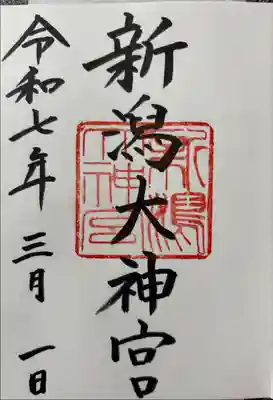 新潟大神宮
令和七年 三月 一日